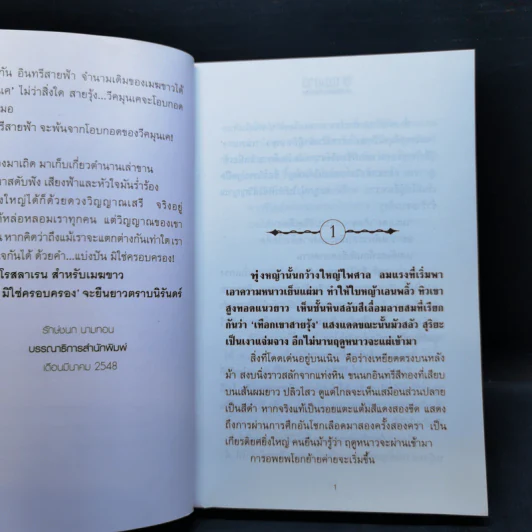 กัน อินทรีสายฟ้า จำนานเดิมของเมฆขาวได้
ไม่ว่าสิ่งใด สายรุ้ง...วีคมุนเคจะโอบกอด
มอ
รีสายฟ้า จะพ้นจากโอบกอดของวีคมุนเค!
งมาเถิด มาเก็บเกี่ยวตำนานเล่าขาน
าสดับฟัง เสียงฟ้าและหัวใจมันร่ำร้อง
งใหญ่ได้ก็ด้วยดวงวิญญาณเสรี จริงอยู่
ห้หล่อหลอมเราทุกคน แต่วิญญาณของเขา
หากคิดว่าถึงแม้เราจะแตกต่างกันเท่าใด เรา
ใจกันได้ ด้วยคำ...แบ่งปัน มิใช่ครอบครอง!
โรสลาเรน สำหรับเมฆขาว
มิใช่ครอบครอง' จะยืนยาวตราบนิรันดร์
รักษ์ชนก นามทอน
บรรณาธิการสำนักพิมพ์
เดือนมีนาคม 2548
1
ทุ่งหญ้านั้นกว้างใหญ่ไพศาล ลมแรงที่เริ่มพา
เอาความหนาวเย็นแผ่มา ทำให้ใบหญ้าเอนพลิ้ว ทิวเขา
สูงทอดแนวยาว เห็นชั้นหินสลับสีเลื่อมลายสมที่เรียก
กันว่า 'เทือกเขาสายรุ้ง' แสงแดดขณะนั้นมัวสลัว สุริยะ
เป็นเงาแจ่มจาง อีกไม่นานฤดูหนาวจะแผ่เข้ามา
สิ่งที่โดดเด่นอยู่บนเนิน คือร่างเหยียดตรงบนหลัง
ม้า สงบนิ่งราวสลักจากแท่งหิน ขนนกอินทรีสีทองที่เสียบ
บนเส้นผมยาว ปลิวไสว ดูแต่ไกลจะเห็นเสมือนส่วนปลาย
เป็นสีดำ หากจริงแท้เป็นรอยแตะแต้มสีแดงสองขีด แสดง
ถึงการผ่านการศึกอันโชกเลือดมาสองครั้งสองครา เป็น
เกียรติยศยิ่งใหญ่ คนยืนม้ารู้ว่า ฤดูหนาวจะผ่านเข้ามา
การอพยพโยกย้ายค่ายจะเริ่มขึ้น
1